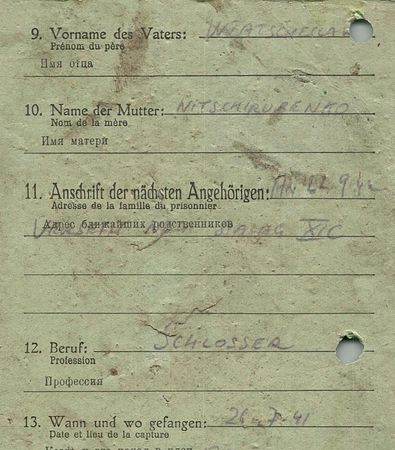 9. Vorname des Vaters:
Prénom du père
Имя отца
10. Name der Mutter: NITSCHIRUBENKO
Nom de la mère
Имя матери
11. Anschrift der nächsten Angehörigen:
Adresse de la famille du prisonnier
Адрес ближайших родственников
STALAG XI C
12. Beruf: SCHLOSSER
Profession
Профессия
13. Wann und wo gefangen: 26-7-41
Date et lieu de la capture